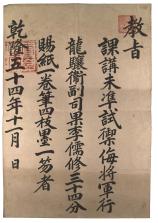 教旨
課講未準試禦侮將軍行
龍驤衛副司果李儒修三十四分
賜紙卷筆四枝墨一笏者
乾隆五十四年十二月 日